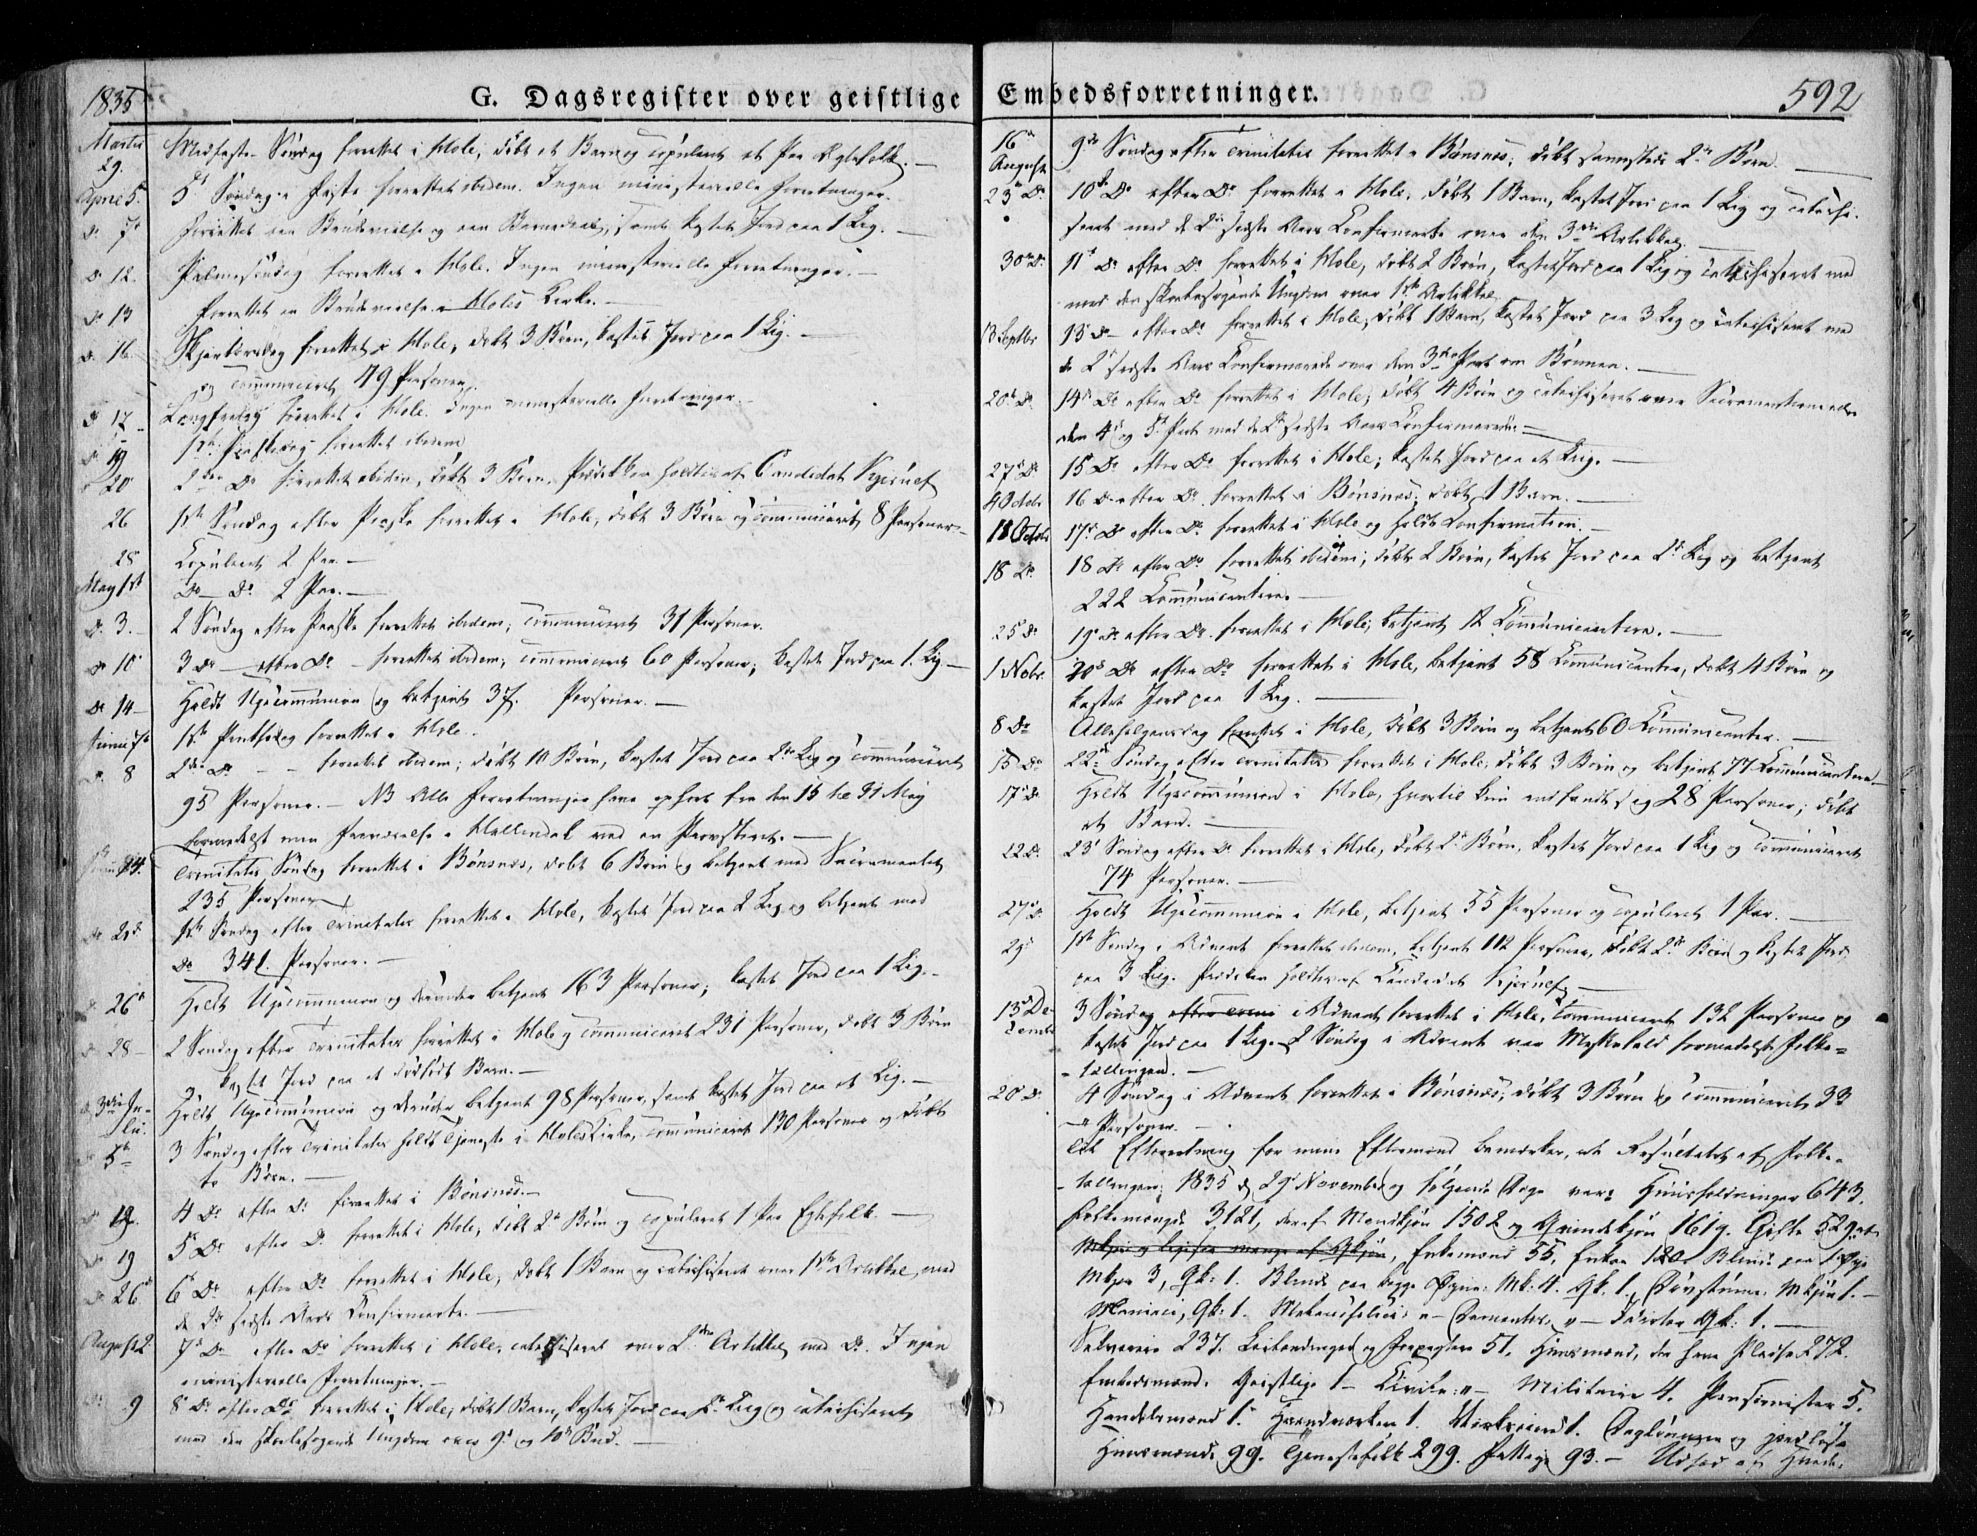 1835
G. Dagsregister over geistlige
Martii 29. Midfaste Søndag forrettet i Hole, døbt et Barn og copuleret et Par Ægtefolk. —
April 5. 5t Søndag i Faste forrettet ibidem. Ingen ministerielle Forretninger.
D. 7d Forrettet een Brudevielse og een Barnedaab, samt kastet Jord paa 1 Lig. —
D 12. Palmesøndag forrettet i Hole. Ingen ministerielle Forretninger. —
D 13 Forrettet en Brudevielse i Holes Kirke. —
D. 16 Skjertorsdag forrettet i Hole, døbt 3 Børn, kastet Jord paa 1 Lig. —
og communiceret 49 Personer.
D 17 Langfredag forrettet i Hole. Ingen ministerielle Forretninger.
D. 19 1ste Paaskedag forrettet ibidem
20 2den Do forrettet ibidem, døbt 3 Børn. Prædikken holdtes af Candidat Kjerulf
26 1ste Søndag efter Paaske forrettet i Hole, døbt 3 Børn og communiceret 8 Personer.
28 Copuleret 2 Par. —
May 1st Do — Do 2 Par. —
D. 3. 2 Søndag efter Paaske forrettet ibidem, communiceret 31 Personer.
D 10 3 Do — efter Do — forrettet ibidem; communiceret 60 Personer; kastet Jord paa 1 Lig —
D. 14 Holdt Ugecommunion og betjent 37. Personer. —
Junii 7de 1ste Pintsedag forrettet i Hole.
D. 8 2den Do — — forrettet ibidem; døbt 10 Børn, kastet Jord paa 2de Lig og communiceret
95 Personer. — NB Alle Forretninger have ophørt fra den 15 til 31 May
formedelst min Fraværelse i Hallendal ved en Provsteret. —
Junii 14. Trinitatis Søndag forrettet i Bønsnæs, døbt 6 Børn og betjent med Sacramentet
235 Personer
D. 21d. 1ste Søndag efter Trinitatis forrettet i Hole, kastet Jord paa 2 Lig og betjent med
Do 341. Personer. —
D 26d Holdt Ugecommunion og derunder betjent 163 Personer; kastet Jord paa 1 Lig. —
D 28 — 2 Søndag efter Trinitatis forrettet i Hole og communiceret 231 Personer, døbt 3 Børn
og kastet Jord paa et dødfødt Barn. —
D 3die Julii. Holdt Ugecommunion og derunder betjent 98 Personer, samt kastet Jord paa et Lig. —
D 5te 3 Søndag efter Trinitatis holdt Tjeneste i Holes Kirke, communiceret 130 Personer og døbt
to Børn. —
D 12. 4 Do efter Do forrettet i Bønsnæs. —
D 19 5 Do efter D. forrettet i Hole, døbt 2de Børn og copuleret 1 Par Egtefolk. —
D 26d 6te Do efter Do forrettet i Hole, døbt 1 Barn og catechiseret over 1ste Artikkel med
de 2de sidste Aars Confirmerte. —
August 2 7d Do efter Do forrettet i Hole, catechiseret over 2den Artikkel med Do. Ingen
ministerielle Forretninger. —
D. 9 8 Do efter Do forrettet i Hole, døbt 1 Barn, kastet Jord paa 2de Lig og catechiseret
med den skolesøgende Ungdom over 9d og 10d Bud. —
Embedsforretninger. 592
16d August 9de Søndag efter Trinitatis forrettet i Bønsnæs, døbt sammesteds 2de Børn. —
23d Do 10de Do efter Do forrettet i Hole, døbt 1 Barn, kastet Jord paa 1 Lig og catechi-
seret med de 2de sidste Aars Confirmerte over den 3die Artikkel. —
30d D. 11te Do efter Do forrettet i Hole, døbt 2 Børn, kastet Jord paa 1 Lig og catechiseret med
med den skolesøgende Ungdom over 1ste Artikkel
13 Septbr 13 Do efter Do forrettet i Hole, døbt 1 Barn, kastet Jord paa 3 Lig og catechiseret med
de 2de sidste Aars Confirmerede over den 3die Part om Bønnen. —
20d D. 14de Do efter Do forrettet i Hole, døbt 4 Børn og catechiseret over Sacramenterne eller
den 4d og 5. Part med de 2de sidste Aars Confirmerede. —
27d D 15 Do efter Do forrettet i Hole; kastet Jord paa et Lig. —
4 Octobr 16 D. efter Do forrettet i Bønsnæs, døbt 1 Barn. —
11 Octobr 17d Do efter Do forrettet i Hole og holdt Confirmation. —
18 D. 18 Do efter Do forrettet ibidem; døbt 2 Børn, kastet Jord paa 2de Lig og betjent
222 Communicantere. —
25d D 19d Do efter Do forrettet i Hole, betjent 12 Communicantere. —
1 Nobr. 20d Do efter Do forrettet i Hole, betjent 58 Communicanter, døbt 4 Børn og
kastet Jord paa 1 Lig. —
8 Do Allehelgensdag forrettet i Hole, døbt 3 Børn og betjent 60 Communicanter. —
15 Do 22de Søndag efter Trinitatis forrettet i Hole, døbt 3 Børn og betjent 77 Communicantere
17d D. Holdt Ugecommunion i Hole, hvortil kun indfandt sig 28 Personer; døbt
et Barn. —
22 D. 23d Søndag efter Do forrettet i Hole, døbt 2de Børn, kastet Jord paa 1 Lig og communiceret
74 Personer. —
27d D Holdt Ugecommunion i Hole, betjent 55 Personer og copuleret 1 Par. —
29d 1ste Søndag i Advent forrettet ibidem, betjent 112 Personer, døbt 2de Børn og kastet Jord
paa 3 Lig. Prædiken holdtes af Candidat Kjerulf —
13d Decembr 3 Søndag efter Trini i Advent forrettet i Hole, communiceret 132 Personer og
kastet Jord paa 1 Lig. 2 Søndag i Advent var Messefald formedelst Folke=
-tællingen. —
20d D. 4 Søndag i Advent forrettet i Bønsnæs, døbt 3 Børn og communiceret 33
Personer. —
Til Efterretning for min Eftermand bemærkes, at Resultatet af Folke-
-tællingen, 1835 d 29d November og følgende Dage var: Huusholdninger 643.
Folkemængde 3121, deraf Mandkjøn 1502 og Qvindekjøn 1619. Gifte 529
Mkjøn og ligesaa mange af Qkjøn, Enkemænd 55, Enker 120. Blinde paa 1 Øye
Mkjøn 3, Qk: 1. Blinde paa begge Øyne: Mk: 4. Qk. 1. Døvstumme. Mkjøn 1. —
Maniaci, Qk: 1. Melancholici: " — Dementes: " — Idioter Qk: 1. —
Selveiere 237. Leilændinge og Forpagtere 51. Huusmænd, der have Pladse 272.
Embedsmænd. Geistlige 1 — Civile: " — Militaire 4. Pensionister 5.
Handelsmænd 1. Haandværkere 1. Dagleiere og jordløse
Huusmænd 99. Tjenestefolk 299. Fattige 93. — Udsæd af Hvede,